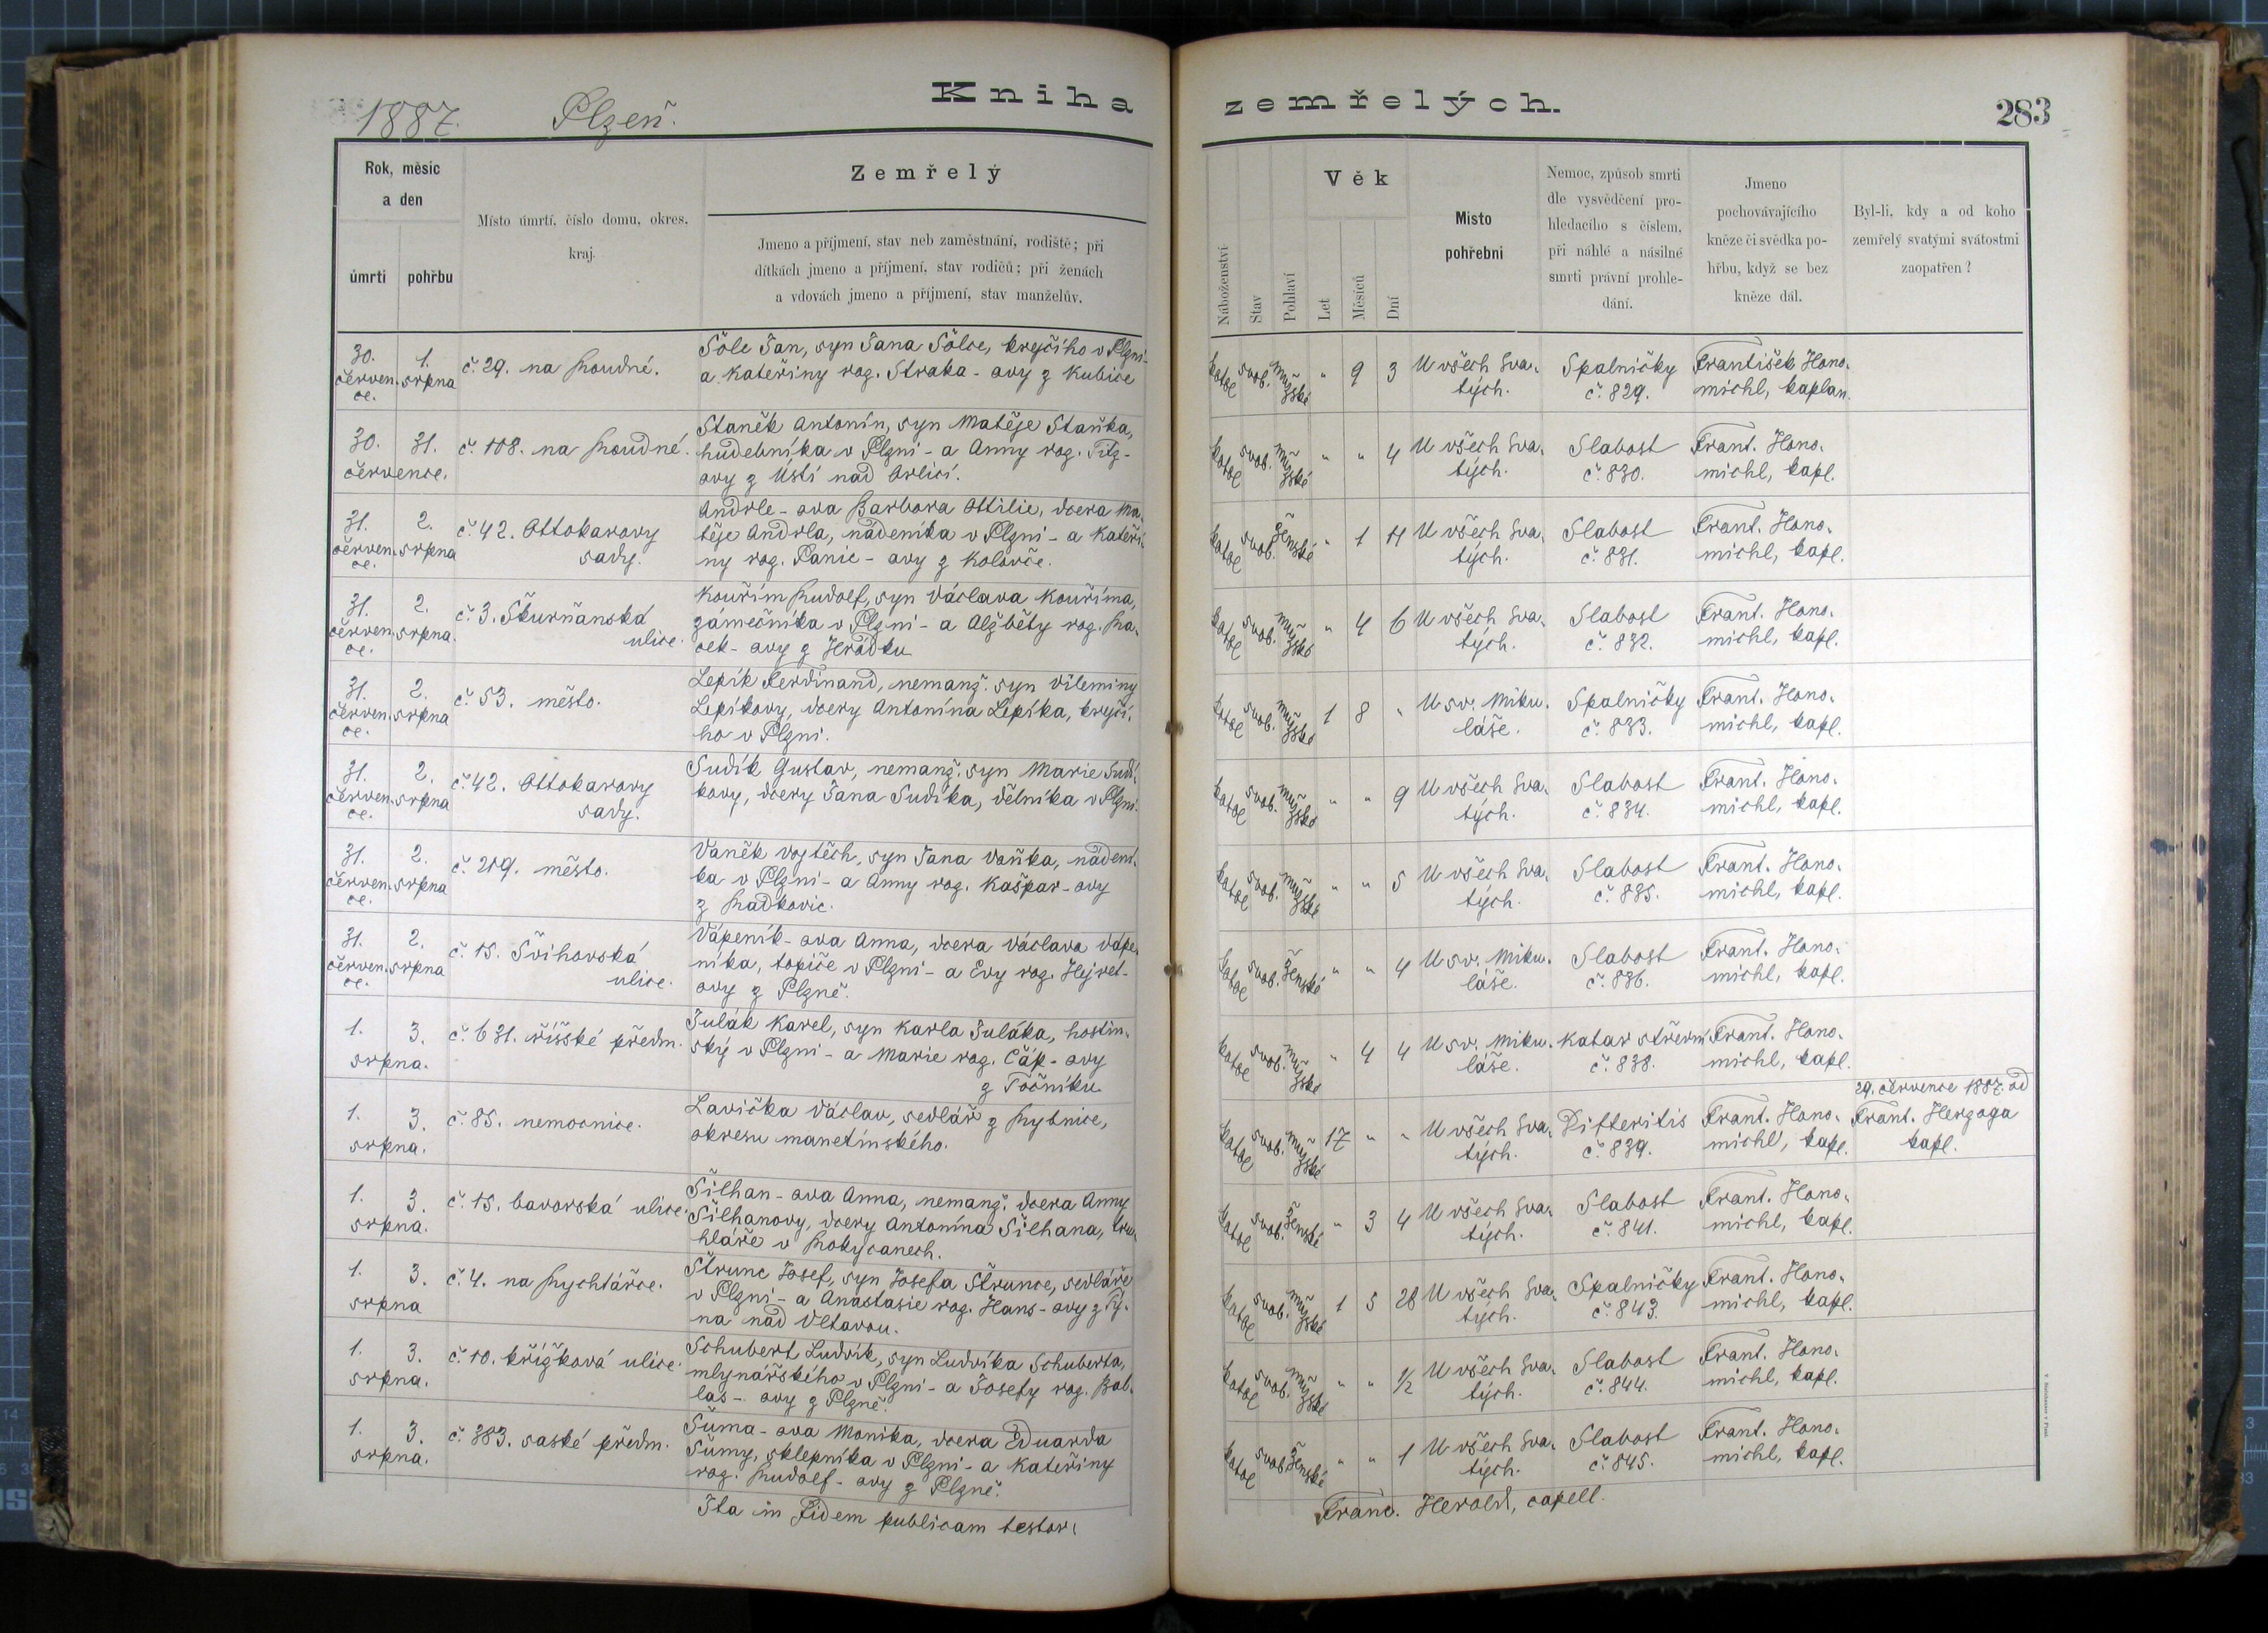 1887. Plzeň. Kniha zemřelých. 283
Rok, měsíc a den
úmrtí
pohřbu
Místo úmrtí, číslo domu, okres, kraj.
Zemřelý
Jmeno a příjmení, stav neb zaměstnání, rodiště; při
dítkách jmeno a příjmení, stav rodičů; při ženách
a vdovách jmeno a příjmení, stav manželův.
Náboženství
Stav
Pohlaví
Věk
Let
Měsíců
Dní
Místo
pohřební
Nemoc, způsob smrti
dle vysvědčení pro-
hledacího s číslem,
při náhlé a násilné
smrti právní prohle-
dání.
Jmeno
pochovávajícího
kněze či svědka po-
hřbu, když se bez
kněze dál.
Byl-li, kdy a od koho
zemřelý svatými svátostmi
zaopatřen?
30. červen. ce. 1. srpna č. 29. na Roudné.
Šôle Jan, syn Jana Šôlce, krejčího v Plzni-
a Kateřiny roz. Straka-ovy z Kubice
katol svob. mužské " 9 3 U všech Sva. tých. Spalničky č. 829. František Hono. michl, kaplan.
30. 31. července. č. 108. na Roudné.
Staněk Antonín, syn Matěje Staňka,
hudebníka v Plzni - a Anny roz. Filz-
ovy z Ústí nad Orlicí.
katol svob. mužské " " 4 U všech Sva. tých. Slabost č. 830. Frant. Hono. michl, kapl.
31. červen. ce. 2. srpna č. 42. Ottokarovy sady.
Andrle-ova Barbora Ottilie, dcera Ma.
těje Andrla, nádeníka v Plzni - a Kateři.
ny roz. Panic-ovy z Koloče.
katol svob. ženské " 1 11 U všech Sva. tých. Slabost č. 831. Frant. Hono. michl, kapl.
31. červen. ce. 2. srpna. č. 3. Škurňanská ulice.
Kouřim Rudolf, syn Václava Kouříma,
zámečníka v Plzni - a Alžběty roz. Ra.
cek-ovy z Hrádku
katol svob. mužské " 4 6 U všech Sva. tých. Slabost č. 832. Frant. Hono. michl, kapl.
31. červen. ce. 2. srpna č. 53. město.
Lepík Ferdinand, nemanž. syn Vileminy
Lepíkovy, dcery Antonína Lepíka, krejčí.
ho v Plzni.
katol svob. mužské 1 8 " U sv. Miku. láše. Spalničky č. 833. Frant. Hono. michl, kapl.
31. červen. ce. 2. srpna č. 42. Ottokarovy sady.
Sudík Gustav, nemanž. syn Marie Sudí.
kovy, dcery Jana Sudíka, dělníka v Plzni.
katol svob. mužské " " 9 U všech Sva. tých. Slabost č. 834. Frant. Hono. michl, kapl.
31. červen. ce. 2. srpna č. 219. město.
Vaněk Vojtěch, syn Jana Vaňka, nádení.
ka v Plzni - a Anny roz. Kašpar-ovy
z Radkovic.
katol svob. mužské " " 5 U všech Sva. tých. Slabost č. 835. Frant. Hono. michl, kapl.
31. červen. ce. 2. srpna č. 15. Švihovská ulice.
Vápeník-ova Anna, dcera Václava Vápe.
níka, topiče v Plzni - a Evy roz. Hejret-
ovy z Plzně.
katol svob. ženské " " 4 U sv. Miku. láše. Slabost č. 836. Frant. Hono. michl, kapl.
1. 3. srpna. č. 631. říšské předm.
Julák Karel, syn Karla Juláka, hostin.
ský v Plzni - a Marie roz. Čáp-ovy
z Točníku.
katol svob. mužské " 4 4 U sv. Miku. láše. Katar střevní č. 838. Frant. Hono. michl, kapl.
1. 3. srpna. č. 85. nemocnice.
Lavička Václav, sedlář z Rybnice,
okresu manetínského.
katol svob. mužské 17 " " U všech Sva. tých. Difteritis č. 839. Frant. Hono. michl, kapl. 29. července 1887. od Frant. Herzoga kapl.
1. 3. srpna. č. 15. bavorská ulice.
Šilhan-ova Anna, nemanž. dcera Anny
Šilhanovy, dcery Antonína Šilhana, tru.
hláře v Rokycanech.
katol svob. ženské " 3 4 U všech Sva. tých. Slabost č. 841. Frant. Hono. michl, kapl.
1. 3. srpna č. 4. na Rychtářce.
Štrunc Josef, syn Josefa Štrunce, sedláře
v Plzni - a Anastasie roz. Hans-ovy z Tý.
na nad Vltavou.
katol svob. mužské 1 5 28 U všech Sva. tých. Spalničky č. 843. Frant. Hono. michl, kapl.
1. 3. srpna. č. 10. křížková ulice.
Schubert Ludvík, syn Ludvíka Schuberta,
mlynářského v Plzni - a Josefy roz. Bal.
las-ovy z Plzně.
katol svob. mužské " " 1/2 U všech Sva. tých. Slabost č. 844. Frant. Hono. michl, kapl.
1. 3. srpna. č. 383. saské předm.
Šuma-ova Monika, dcera Eduarda
Šumy, sklepníka v Plzni - a Kateřiny
roz. Rudolf-ovy z Plzně.
katol svob. ženské " " 1 U všech Sva. tých. Slabost č. 845. Frant. Hono. michl, kapl.
Ita in fidem publicam testor: Franc. Herold, capell.